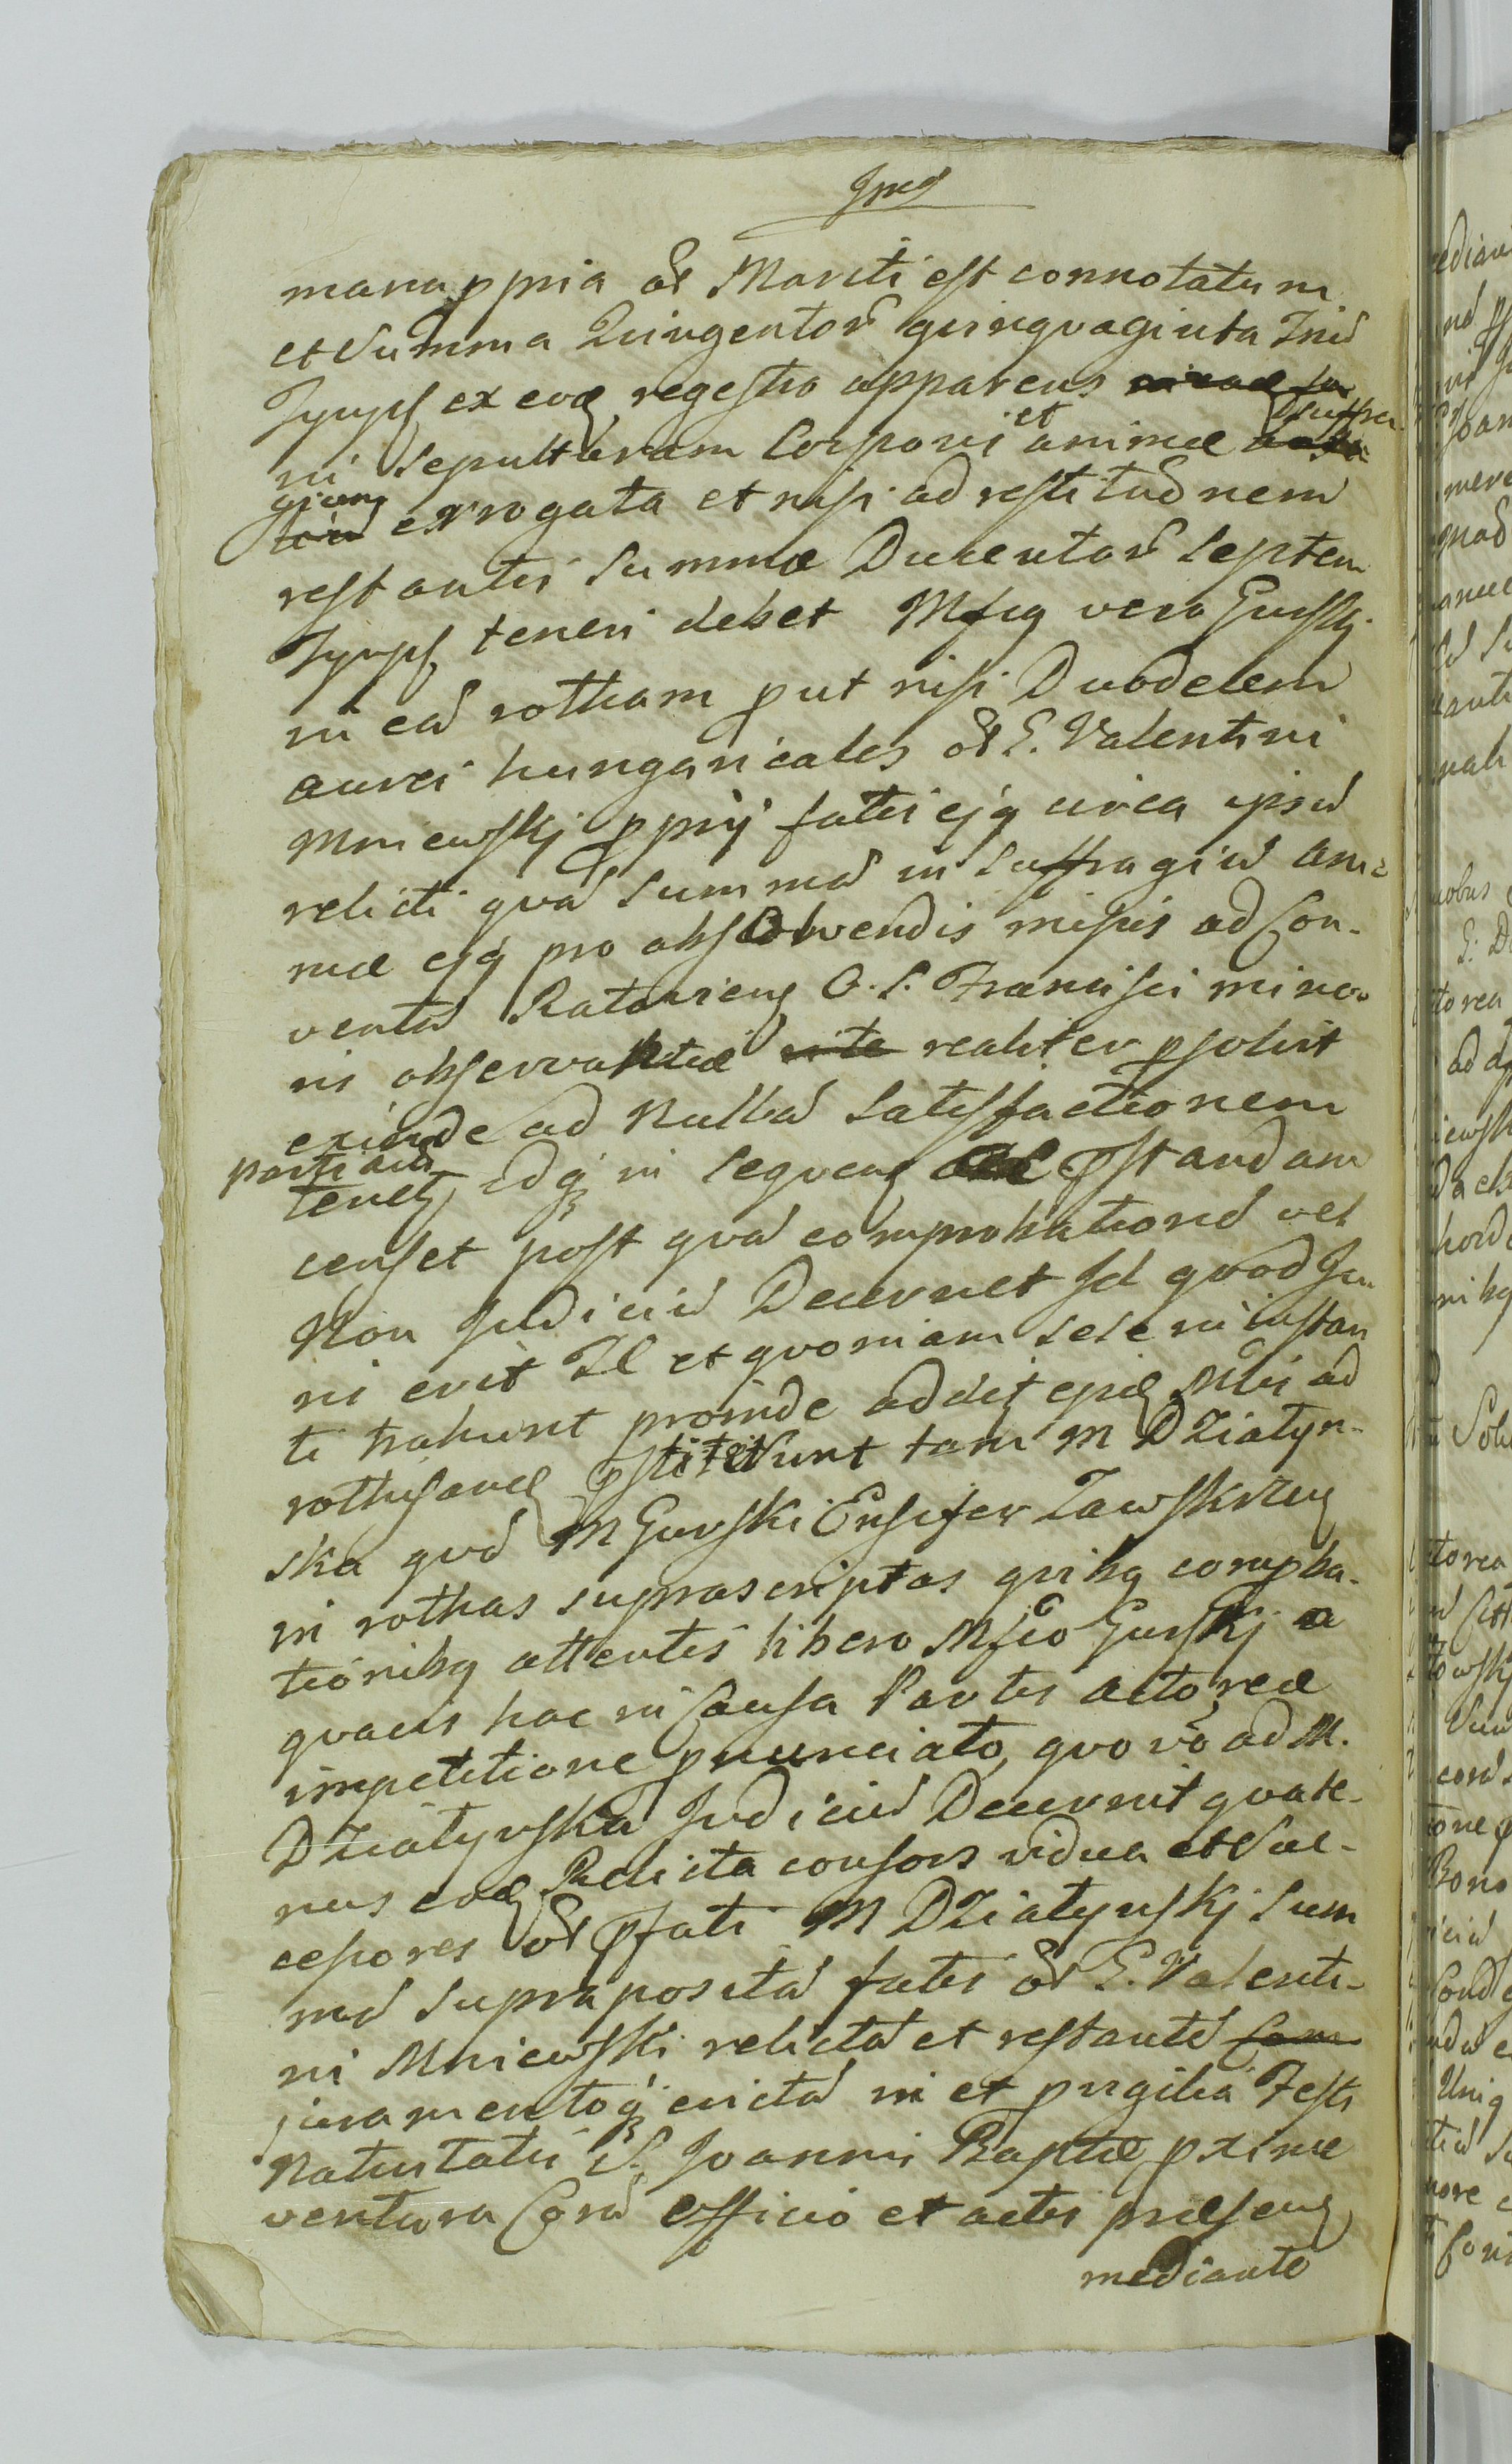 manu ppria ol Mariti est connotatum
et Summa Quingentor quinquaginta Trid
Tynph ex eod regestro apparens
in Sepulturam Corporis et animæ suffra
gium errogata et nisi ad restitudnem
restantis Summæ Ducentor Septem
Tynph teneri debet Mfcq vero Gurskj
in ead rotham put nisi Duodecem
aurei hungaricales ol G. Valentini
Mniewskj pprij fatei ejq circa ipsud
relicti qvad Summad in Suffragiud ani
mæ ejq pro absolvendis missis ad Con-
ventud Ratoviens O. S. Francisci mino
ris observantiæ realiter psolvit
exinde ad Nullad Satisfactionem
partiaud
tenet, idq in Sequens pstandam
censet post qvad comprobationed vel
Non Judiciud Decernet Id qvod Ju
ris erit Il et qvoniam sese in instan
ti trahunt proinde addit epiæ Mtri ad
rothisand pstiterunt tam M Dziatyn-
ska qvd M Gurski Ensifer Zawskrzys
in rothas suprascriptas qvibq compba-
tionibq attentis libero Mfco Gurskj a
qvavis hac in Causa Partis actoreæ
impetitione pnunciato, qvo vo ad M.
Dziatynska Judiciud Decernit qvate-
nus ead Relicta consors vidua et Suc-
cessores ol pfati M Dziatynskj Sum
mad Supra positad fatei ol G. Valenti-
ni Mniewski relictad et restanted
juramentoq evictad in et pvigilia Festi
Natiutatis S. Joannis Baptæ pxime
ventura Corad officio et actis præsens
mediante